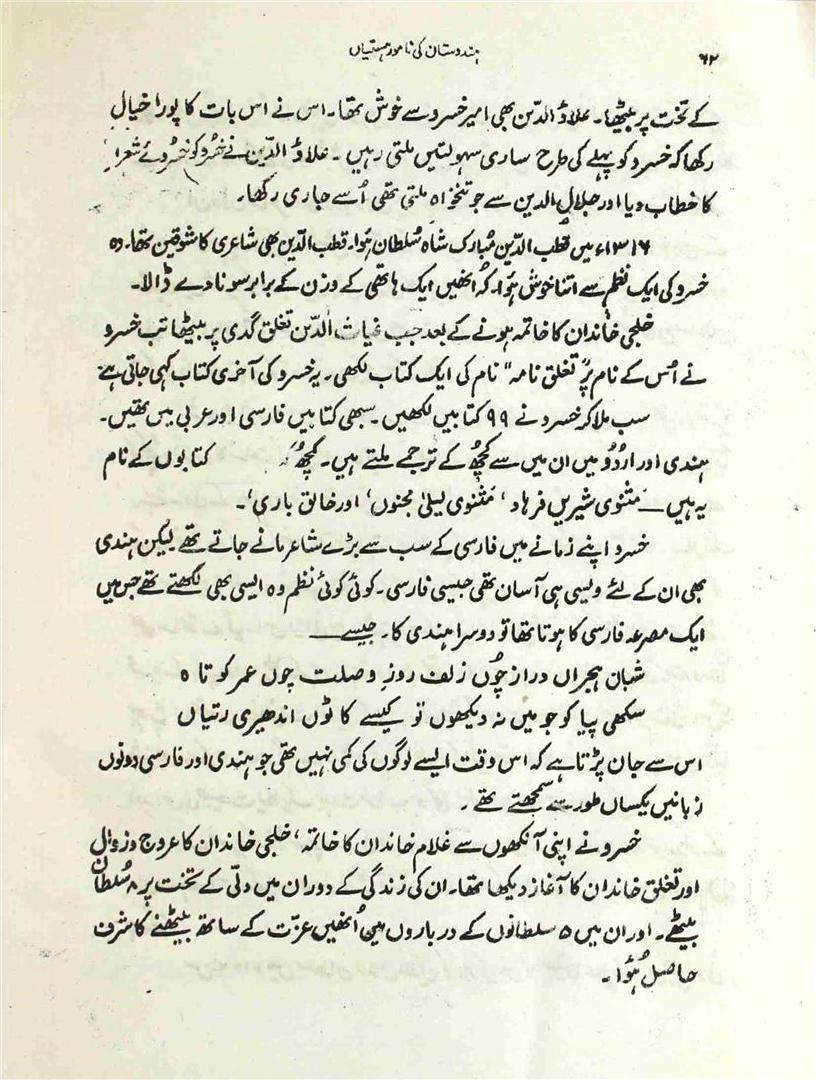 ۶۲
ہندوستان کی نامور ہستیاں
کے تخت پر بیٹھا۔ علاؤ الدّین بھی امیر خسرو سے خوش تھا۔ اس نے اس بات کا پورا خیال
رکھا کہ خسرو کو پہلے کی طرح ساری سہولتیں ملتی رہیں۔ علاؤ الدّین نے خسُرو کو خسُروئے شعرا
کا خطاب دیا اور جلال الدین سے جو تنخواہ ملتی تھی اُسے جاری رکھا۔
۱۳۱۶ء میں قُطب الدّین مُبارک شاہ سُلطان ہُوا۔ قطب الدّین بھی شاعری کا شوقین تھا۔ وہ
خسرو کی ایک نظم سے اتنا خوش ہُوا۔ کہ اُنھیں ایک ہاتھی کے وزن کے برابر سونا دے ڈالا۔
خلجی خاندان کا خاتمہ ہونے کے بعد جب غیاث الدّین تغلق گدی پر بیٹھا تب خسرو
نے اُس کے نام پر "تغلق نامہ" نام کی ایک کتاب لکھی۔ یہ خسرو کی آخری کتاب کہی جاتی ہے
سب ملا کر خسرو نے ۹۹ کتابیں لکھیں۔ سبھی کتابیں فارسی اور عربی میں تھیں۔
ہندی اور اُردُو میں ان میں سے کُچھ کے ترجمے ملتے ہیں۔ کُچھ کتابوں کے نام
یہ ہیں — مَثنوی شیریں فرہاد، مَثنوی لیلیٰ مجنوں، اور خالق باری،۔
خسرو اپنے زمانے میں فارسی کے سب سے بڑے شاعر مانے جاتے تھے لیکن ہندی
بھی ان کے لئے ویسی ہی آسان تھی جیسی فارسی۔ کوئی کوئی نظم وہ ایسی بھی لکھتے تھے جس میں
ایک مصرعہ فارسی کا ہوتا تھا تو دوسرا ہندی کا۔ جیسے —
شبان ہجراں دراز چُوں زلف روزِ وصلت چوں عمر کوتاہ
سکھی پیا کو جو میں نہ دیکھوں تو کیسے کاٹوں اندھیری رتیاں
اس سے جان پڑتا ہے کہ اس وقت ایسے لوگوں کی کمی نہیں تھی جو ہندی اور فارسی دونوں
زبانیں یکساں طور سے سمجھتے تھے۔
خسرو نے اپنی آنکھوں سے غلام خاندان کا خاتمہ، خلجی خاندان کا عروج و زوال
اور تغلق خاندان کا آغاز دیکھا تھا۔ ان کی زندگی کے دوران میں دلّی کے تخت پر ۸ سُلطان
بیٹھے۔ اور ان میں ۵ سلطانوں کے درباروں میں اُنھیں عزّت کے ساتھ بیٹھنے کا شرف
حاصل ہُوا۔